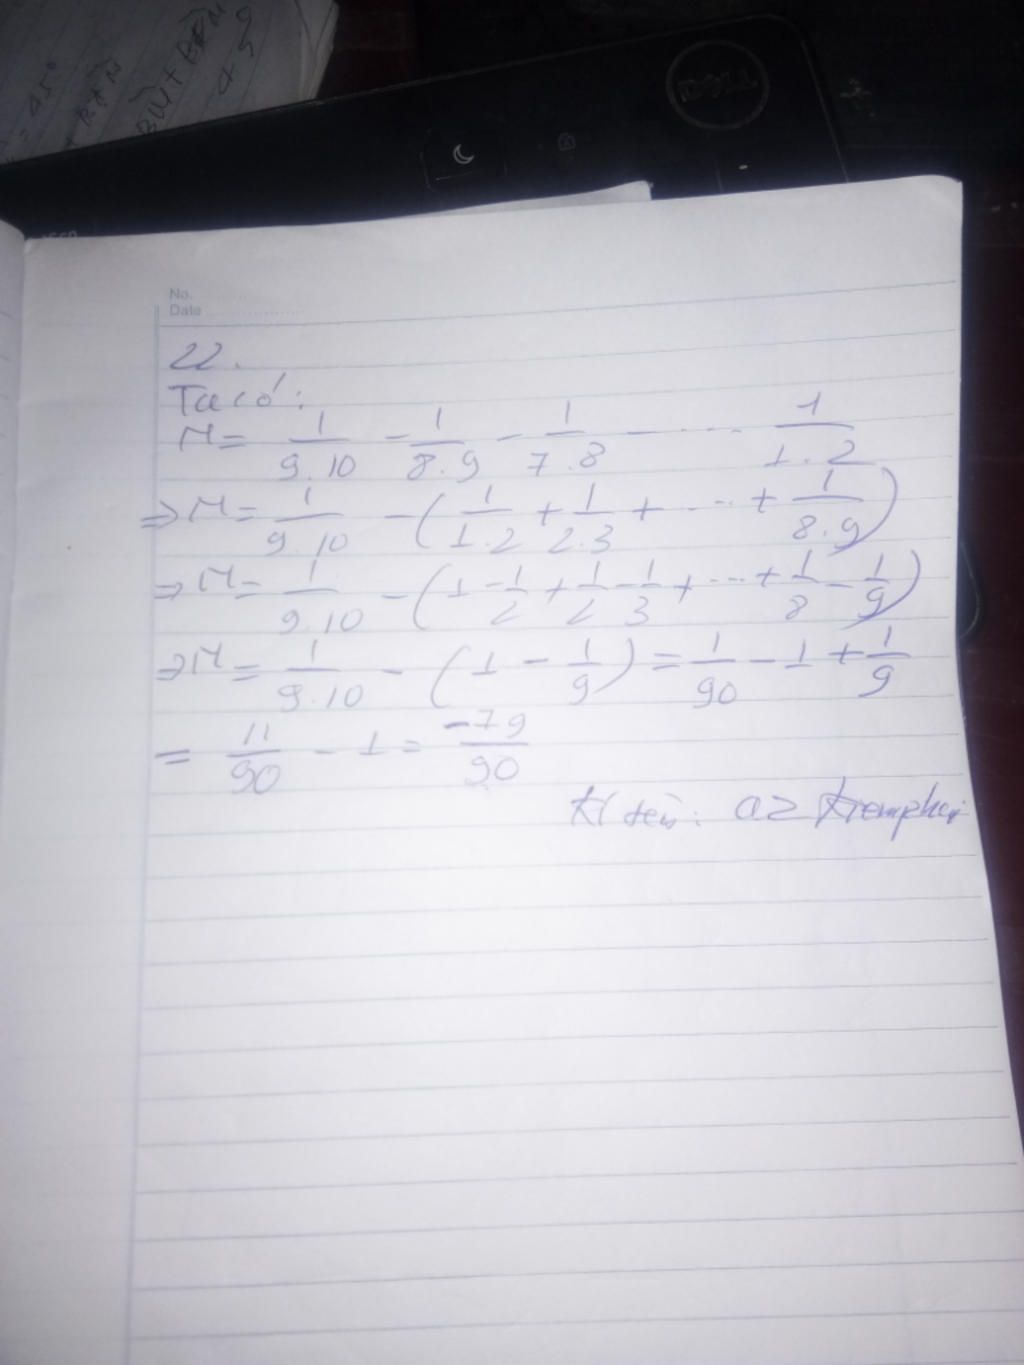 45°
BW + BDM
No.
Date
DELL
22.
Ta có:
M = 1/9.10 - 1/8.9 - 1/7.8 - ... - 1/1.2
=> M = 1/9.10 - (1/1.2 + 1/2.3 + ... + 1/8.9)
=> M = 1/9.10 - (1 - 1/2 + 1/2 - 1/3 + ... + 1/8 - 1/9)
=> M = 1/9.10 - (1 - 1/9) = 1/90 - 1 + 1/9
= 11/90 - 1 = -79/90
Kí tên: